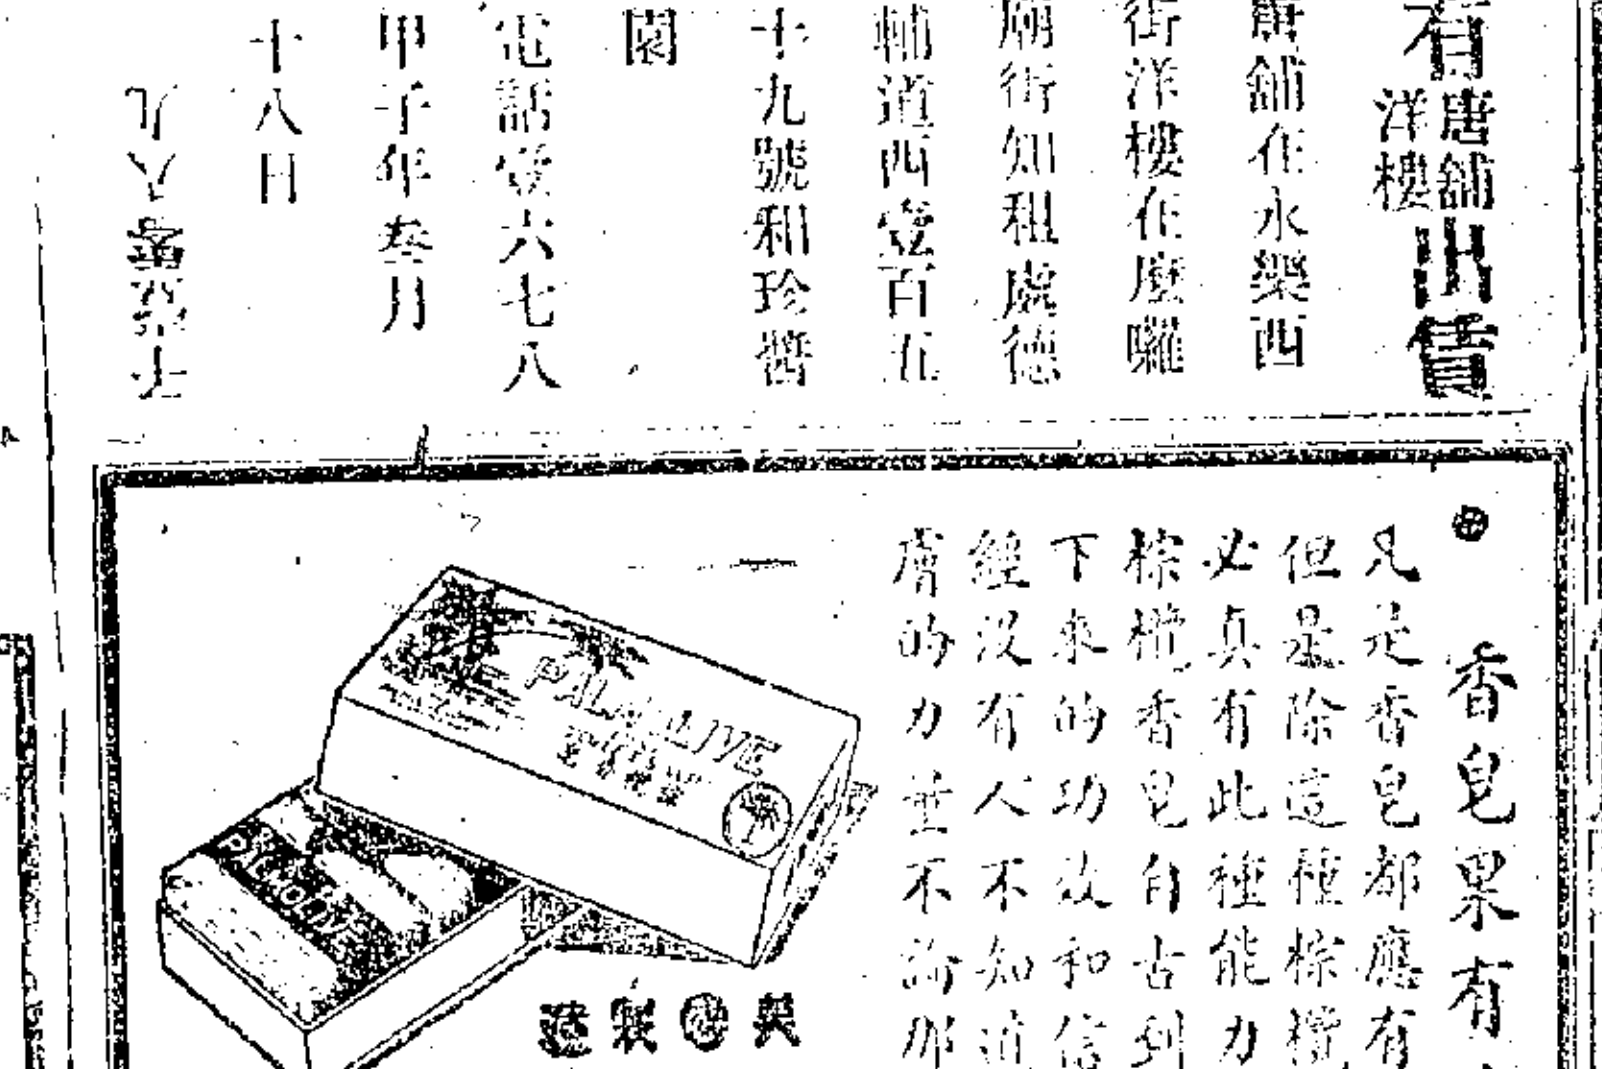 有唐舖洋樓出賃
唐舖在永樂西
街洋樓在麼囉
廟街知租處德
輔道西壹百五
十九號和珍醬
園
電話壹六七八
甲子年叁月
十八日
香皂果有
凡是香皂都應有
但是除這種棕欖
必真有此種能力
棕欖香皂自古到
下來的功效和信
經沒有人不知道
膚的力量不論那
PALMOLIVE